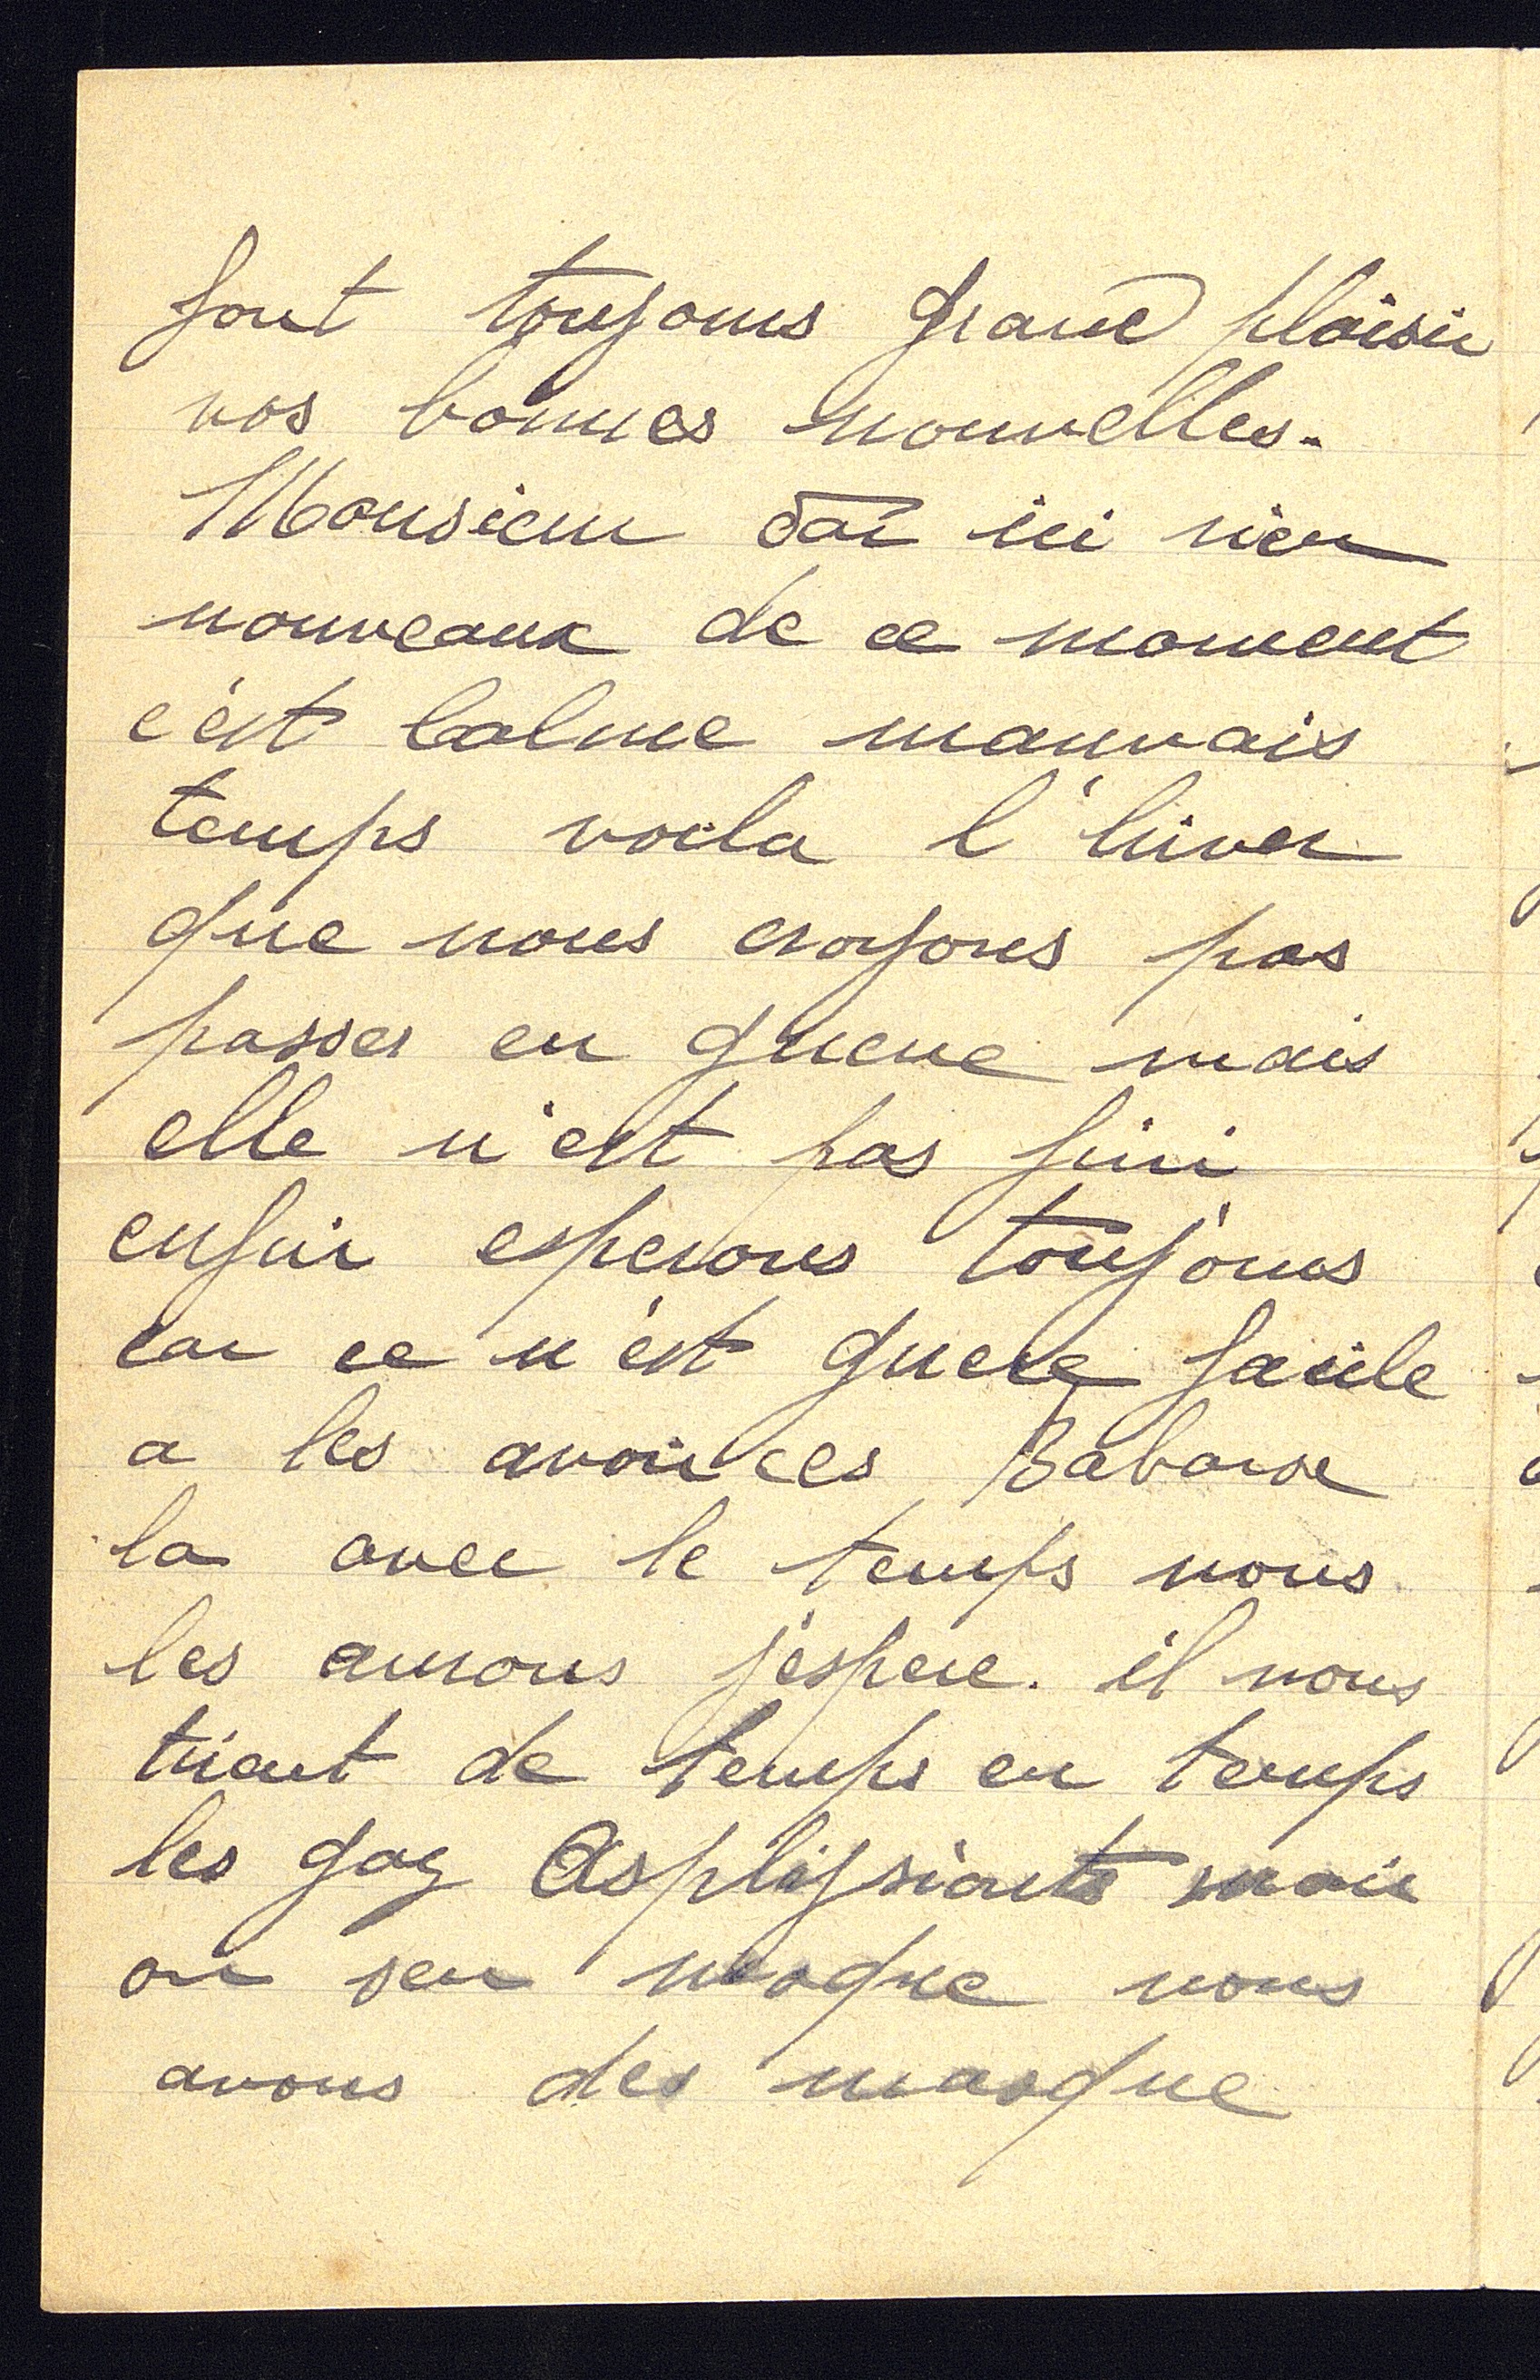 font toujours grand plaisir
vos bonnes nouvelles.
Monsieur dai ici rien
nouveaux de ce moment
c'est Calme mauvais
temps voila l'hiver
que nous croyons pas
passer en guerre mais
elle n'est pas fini
enfin esperons toujours
car ce n'est guere facile
a les avoir ces Babarse
la avec le temps nous
les aurons j'espere. il nous
tirent de temps en temps
les gaz Asphysiants mais
on sen moque nous
avons des masque